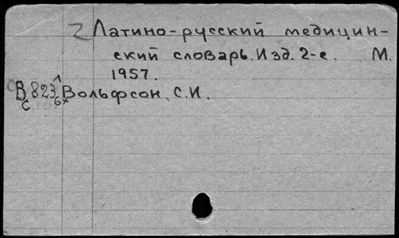 2 Латино-русский медицин-
ский словарь. Изд. 2-е. М.
1957.
В 823 Вольфсон, С.И.
с 6х